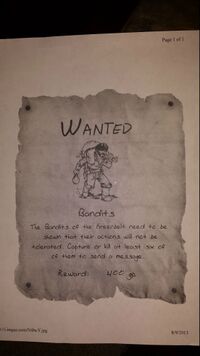 Page 1 of 1
WANTED
Bandits
The Bandits of the Greenbelt need to be
shewn that their actions will not be
tolerated. Capture or kill at least six of
of them to send a message.
Reward: 400 gp
8/9/2013